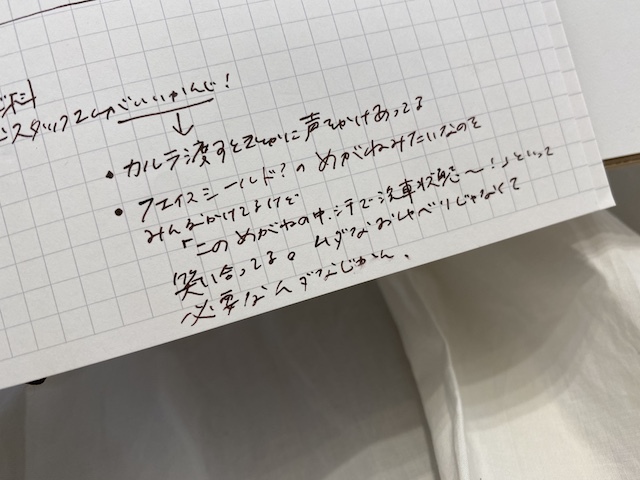 科
スタッフさんがいいかんじ!
・カルテ渡すときとかに声をかけあってる
・フェイスシールド?のめがねみたいなのを
みんなかけてるけど
「このめがねの中、汗で洗車状態〜!」といって
笑い合ってる。ムダなおしゃべりじゃなくて
必要なムダなじかん.